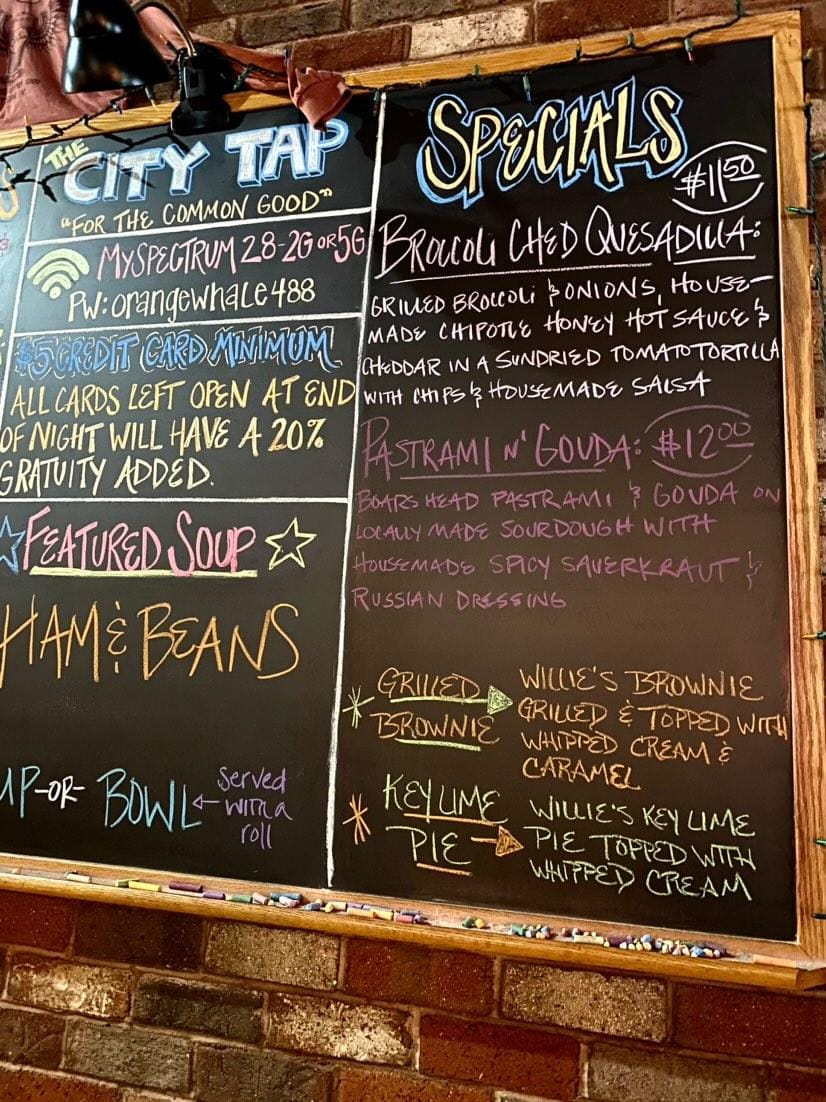 THE
CITY TAP
"FOR THE COMMON GOOD"
MYSPECTRUM 28-2G OR 5G
PW: orangewhale488
$5 CREDIT CARD MINIMUM
ALL CARDS LEFT OPEN AT END
OF NIGHT WILL HAVE A 20%
GRATUITY ADDED.
FEATURED SOUP
HAM & BEANS
UP -OR- BOWL ← served
with a
roll
SPECIALS
$11.50
BROCCOLI CHED QUESADILLA:
GRILLED BROCCOLI & ONIONS, HOUSE-
MADE CHIPOTLE HONEY HOT SAUCE &
CHEDDAR IN A SUNDRIED TOMATO TORTILLA
WITH CHIPS & HOUSEMADE SALSA
PASTRAMI N' GOUDA: $12.00
BOARS HEAD PASTRAMI & GOUDA ON
LOCALLY MADE SOURDOUGH WITH
HOUSEMADE SPICY SAUERKRAUT &
RUSSIAN DRESSING
* GRILLED
BROWNIE
WILLIE'S BROWNIE
GRILLED & TOPPED WITH
WHIPPED CREAM &
CARAMEL
* KEY LIME
PIE →
WILLIE'S KEY LIME
PIE TOPPED WITH
WHIPPED CREAM